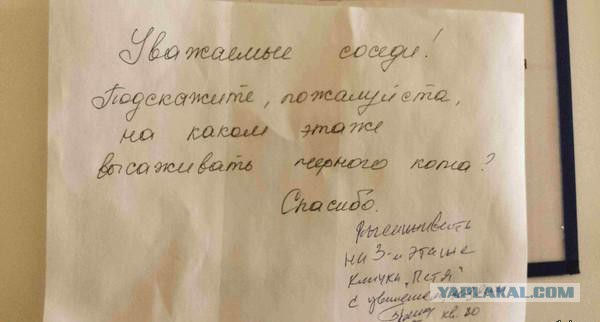 Уважаемые соседи!
Подскажите, пожалуйста,
на каком этаже
высаживать черного кота?
Спасибо.
Высаживать
на 3-м этаже
кличка „Петя"
с уважением
кв. 80
YAPLAKAL.COM